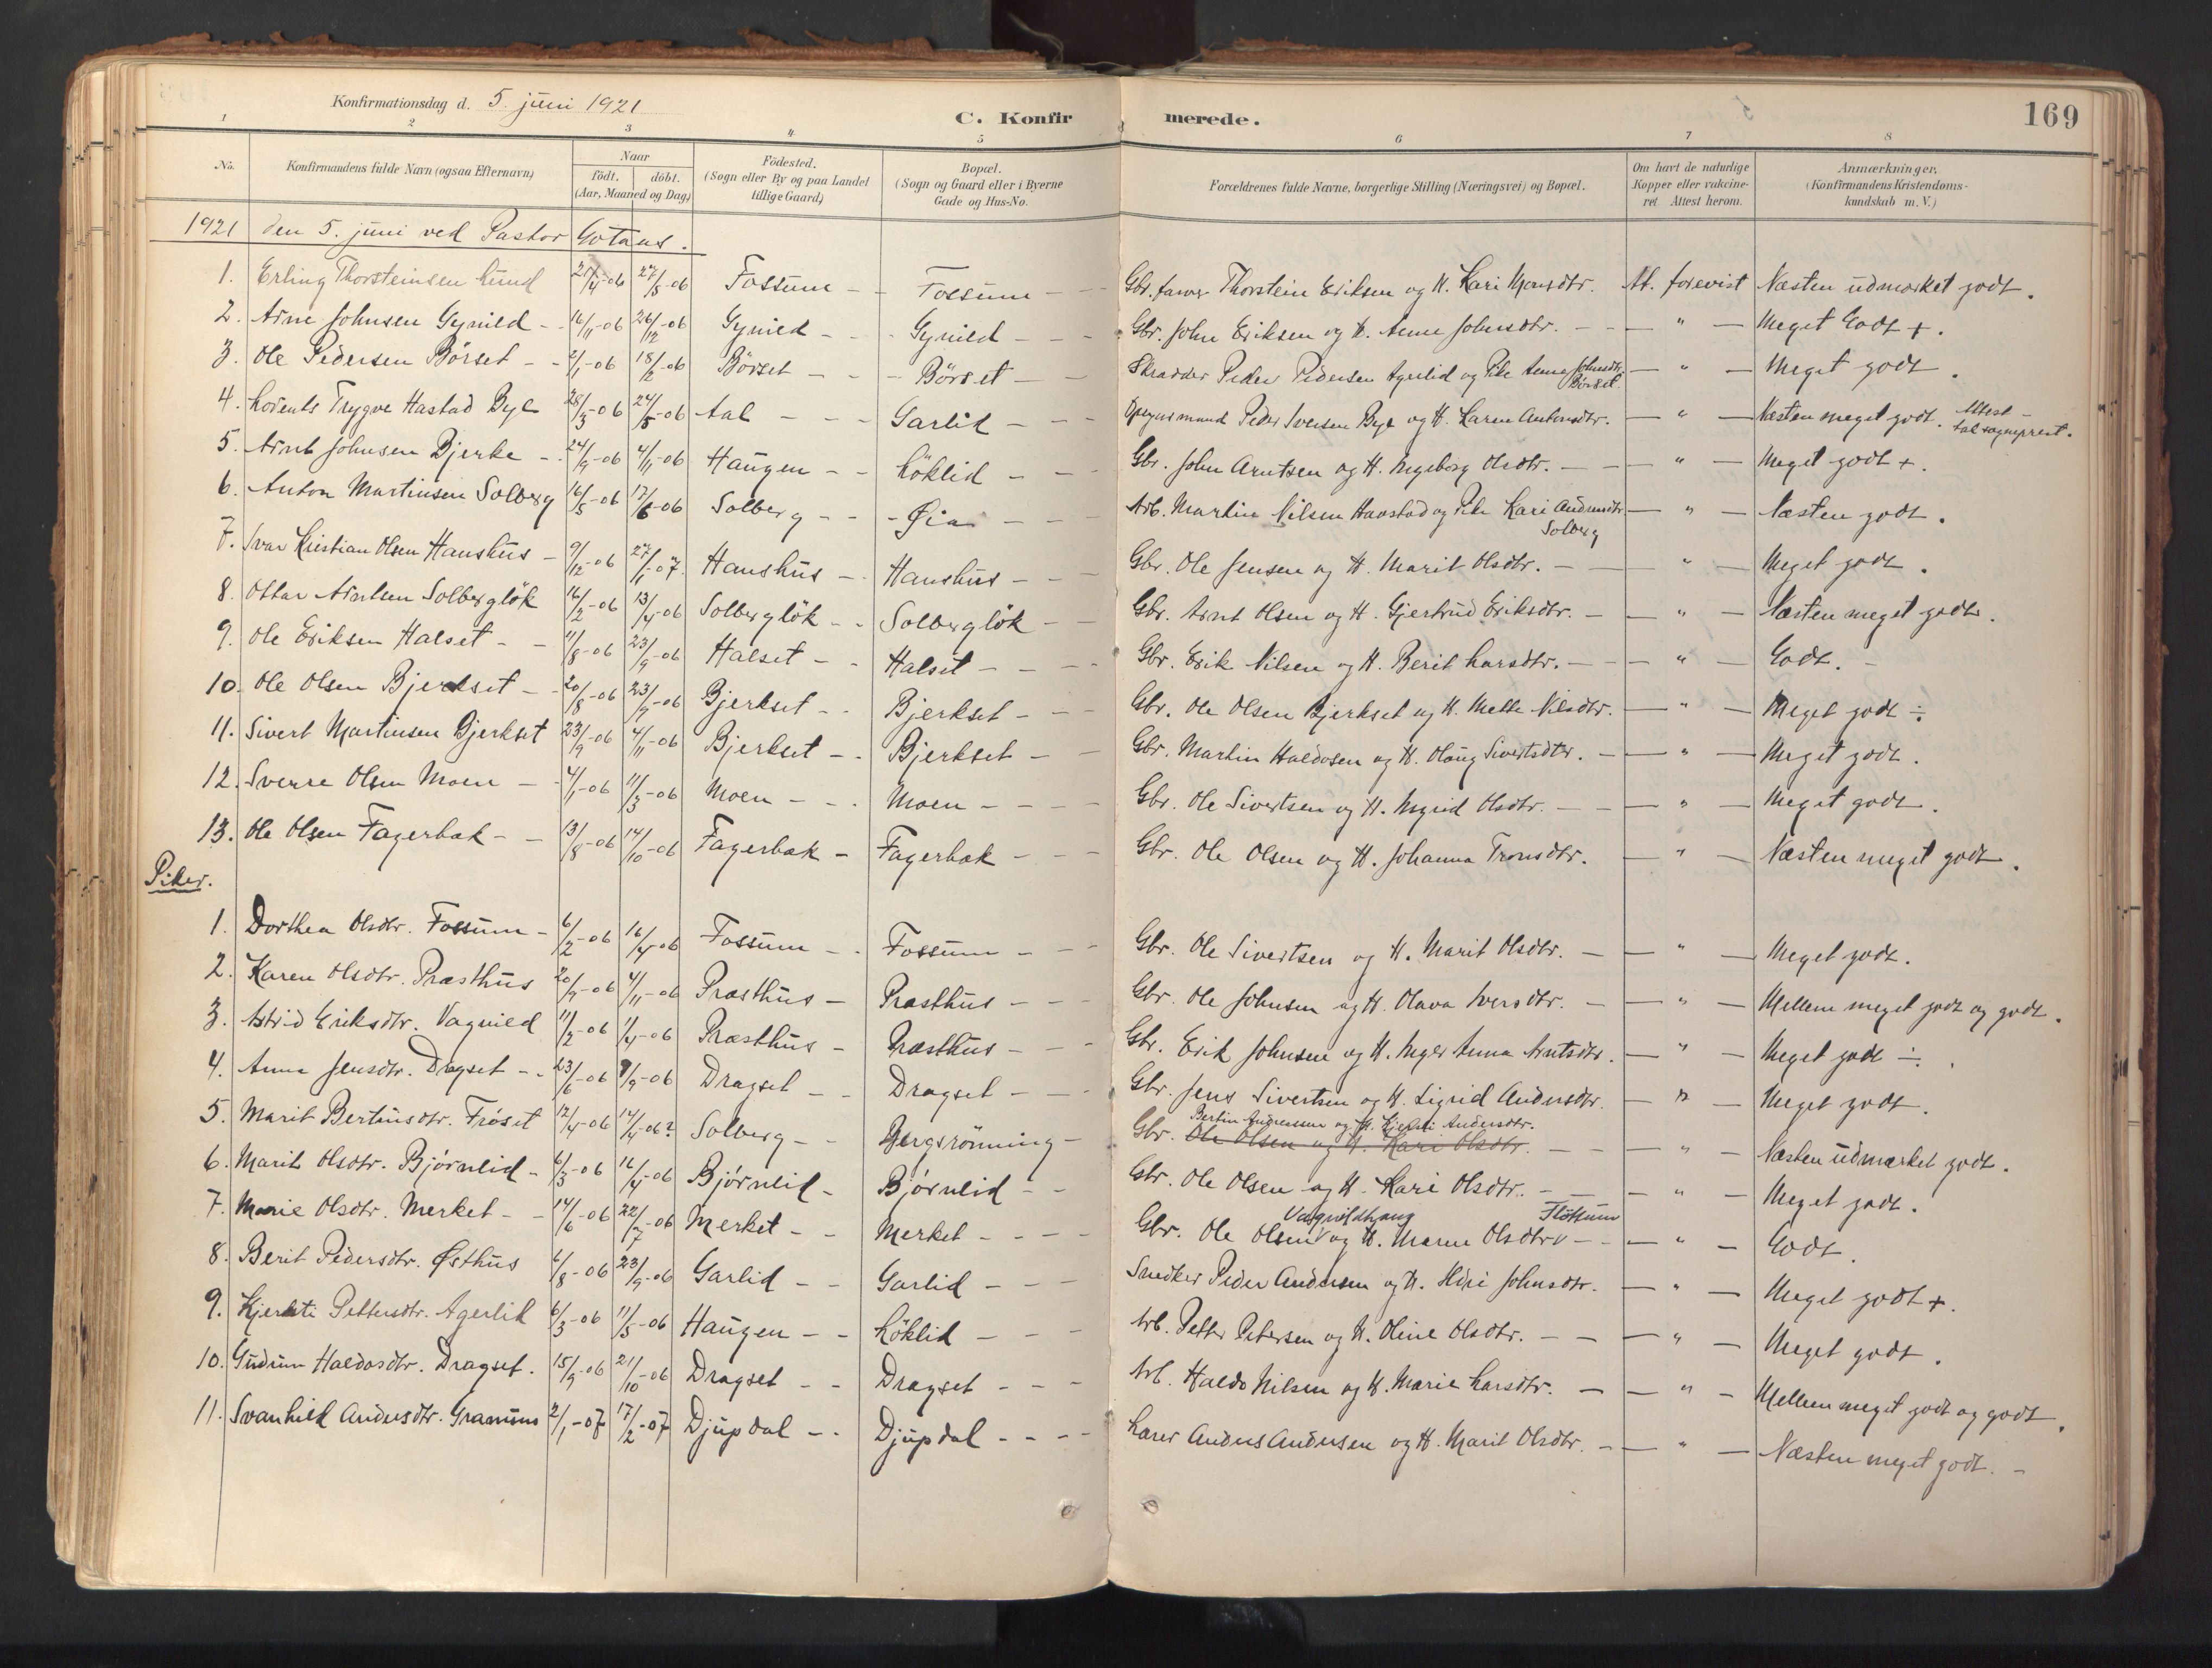 Konfirmationsdag d. 5. juni 1921
C. Konfirmerede.
169
1 2 3 4 5 6 7 8
No. | Konfirmandens fulde Navn (ogsaa Efternavn) | Naar födt. döbt. (Aar, Maaned og Dag) | Födested. (Sogn eller By og paa Landet tillige Gaard) | Bopæl. (Sogn og Gaard eller i Byerne Gade og Hus-No. | Forældrenes fulde Navne, borgerlige Stilling (Næringsvei) og Bopæl. | Om havt de naturlige Kopper eller vakcineret. Attest herom. | Anmærkninger. (Konfirmandens Kristendomskundskab m. V.)
1921 den 5. juni ved Pastor Götaas.
1. Erling Thorsteinsen Lund 21/4-06 27/5-06 Fossum - - Fossum - - Gbr. Thorstein Eriksen og H. Kari Monsdtr. At. forevist Næsten udmærket godt.
2. Arne Johnsen Gynild - 16/11-06 26/12-06 Gynild - - Gynild - - Gbr. John Eriksen og H. Anne Johnsdtr. - — " — Meget Godt +.
3. Ole Pedersen Börset - - 2/1-06 18/2-06 Börset - - Börset - - Skrædder Peder Pedersen Agerlid og Pike Anne Johnsdtr. Börset — " — Meget godt.
4. Lorents Trygve Hastad Bye 28/3-06 24/5-06 Aal - - Garlid - - Peder Iversen Bye og H. Karen Antonsdtr. — " — Næsten meget godt. Attest - Aal sogneprest.
5. Arnt Johnsen Bjerke - 24/9-06 4/11-06 Haugen - - Löklid - Gbr. John Arntsen og H. Ingeborg Olsdtr. - — " — Meget godt +.
6. Anton Martinsen Solberg 16/5-06 17/6-06 Solberg - - Øia - - Arb. Martin Nilsen Haastad og Pike Kari Andersdtr. Solberg — " — Næsten godt.
7. Ivar Kristian Olsen Hanshus - 9/12-06 27/1-07 Hanshus - Hanshus - - Gbr. Ole Jensen og H. Marit Olsdtr. - — " — Meget godt.
8. Ottar Arntsen Solberglök 16/2-06 13/4-06 Solberglök - - Solberglök - - Gbr. Arnt Olsen og H. Gjertrud Eriksdtr. - — " — Næsten meget godt.
9. Ole Eriksen Halset - - 11/8-06 23/9-06 Halset - - Halset - - Gbr. Erik Nilsen og H. Berit Larsdtr. - — " — Godt. -
10. Ole Olsen Bjerkset - - 20/8-06 23/9-06 Bjerkset - - Bjerkset - - Gbr. Ole Olsen Bjerkset og H. Mette Nilsdtr. — " — Meget godt ÷
11. Sivert Martinsen Bjerkset 23/9-06 4/11-06 Bjerkset - - Bjerkset - Gbr. Martin Haldosen og H. Olaug Sivertsdtr. - — " — Meget godt.
12. Sverre Olsen Moen - - 4/1-06 11/3-06 Moen - - Moen - - - Gbr. Ole Sivertsen og H. Ingrid Olsdtr. - - — " — Meget godt.
13. Ole Olsen Fagerbak - - 13/8-06 14/10-06 Fagerbak - Fagerbak - - Gbr. Ole Olsen og H. Johanna Tronsdtr. — " — Næsten meget godt.
Piker.
1. Dorthea Olsdtr. Fossum - 6/2-06 16/4-06 Fossum - - Fossum - - Gbr. Ole Sivertsen og H. Marit Olsdtr. - — " — Meget godt.
2. Karen Olsdtr. Præsthus 20/9-06 4/11-06 Præsthus - Præsthus - - Gbr. Ole Johnsen og H. Olava Iversdtr. - — " — Mellem meget godt og godt.
3. Astrid Eriksdtr. Vagnild 11/2-06 1/4-06 Præsthus - Præsthus - - Gbr. Erik Johnsen og H. Inger Anna Arntsdtr. — " — Meget godt ÷.
4. Anne Jensdtr. Dragset - - 23/6-06 9/9-06 Dragset - - Dragset - - Gbr. Jens Sivertsen og H. Sigrid Andersdtr. — " — Meget godt.
5. Marit Bertinsdtr. Fröset 12/4-06 14/4-06? Solberg - - Bergsrönning - Gbr. Bertin Andreassen og H. Kjersti Andersdtr. Ole Olsen og H. Kari Olsdtr. - - — " — Næsten udmærket godt.
6. Marit Olsdtr. Björnlid - 6/3-06 16/4-06 Björnlid - Björnlid - - Gbr. Ole Olsen og H. Kari Olsdtr. - — " — Meget godt.
7. Marie Olsdtr. Merket - - 14/6-06 22/7-06 Merket - - Merket - - - Gbr. Ole Olsen Vagnildhaug og H. Maren Olsdtr. Flöttum - - — " — Godt.
8. Berit Pedersdtr. Østhus 6/8-06 23/9-06 Garlid - - Garlid - - Snedker Peder Andersen og H. Johnsdtr. — " — Meget godt +.
9. Kjersti Pettersdtr. Agerlid 6/3-06 11/5-06 Haugen - - Löklid - - Arb. Petter Petersen og H. Oline Olsdtr. - - — " — Meget godt.
10. Gudrun Haldosdtr. Dragset. 15/9-06 21/10-06 Dragset - - Dragset - - Arb. Haldo Nilsen og H. Marie Larsdtr. - — " — Mellem meget godt og godt.
11. Svanhild Andersdtr. Granmo 2/1-07 17/2-07 Djupdal - - Djupdal - - - Lærer Anders Andersen og H. Marit Olsdtr. - — " — Næsten meget godt. -